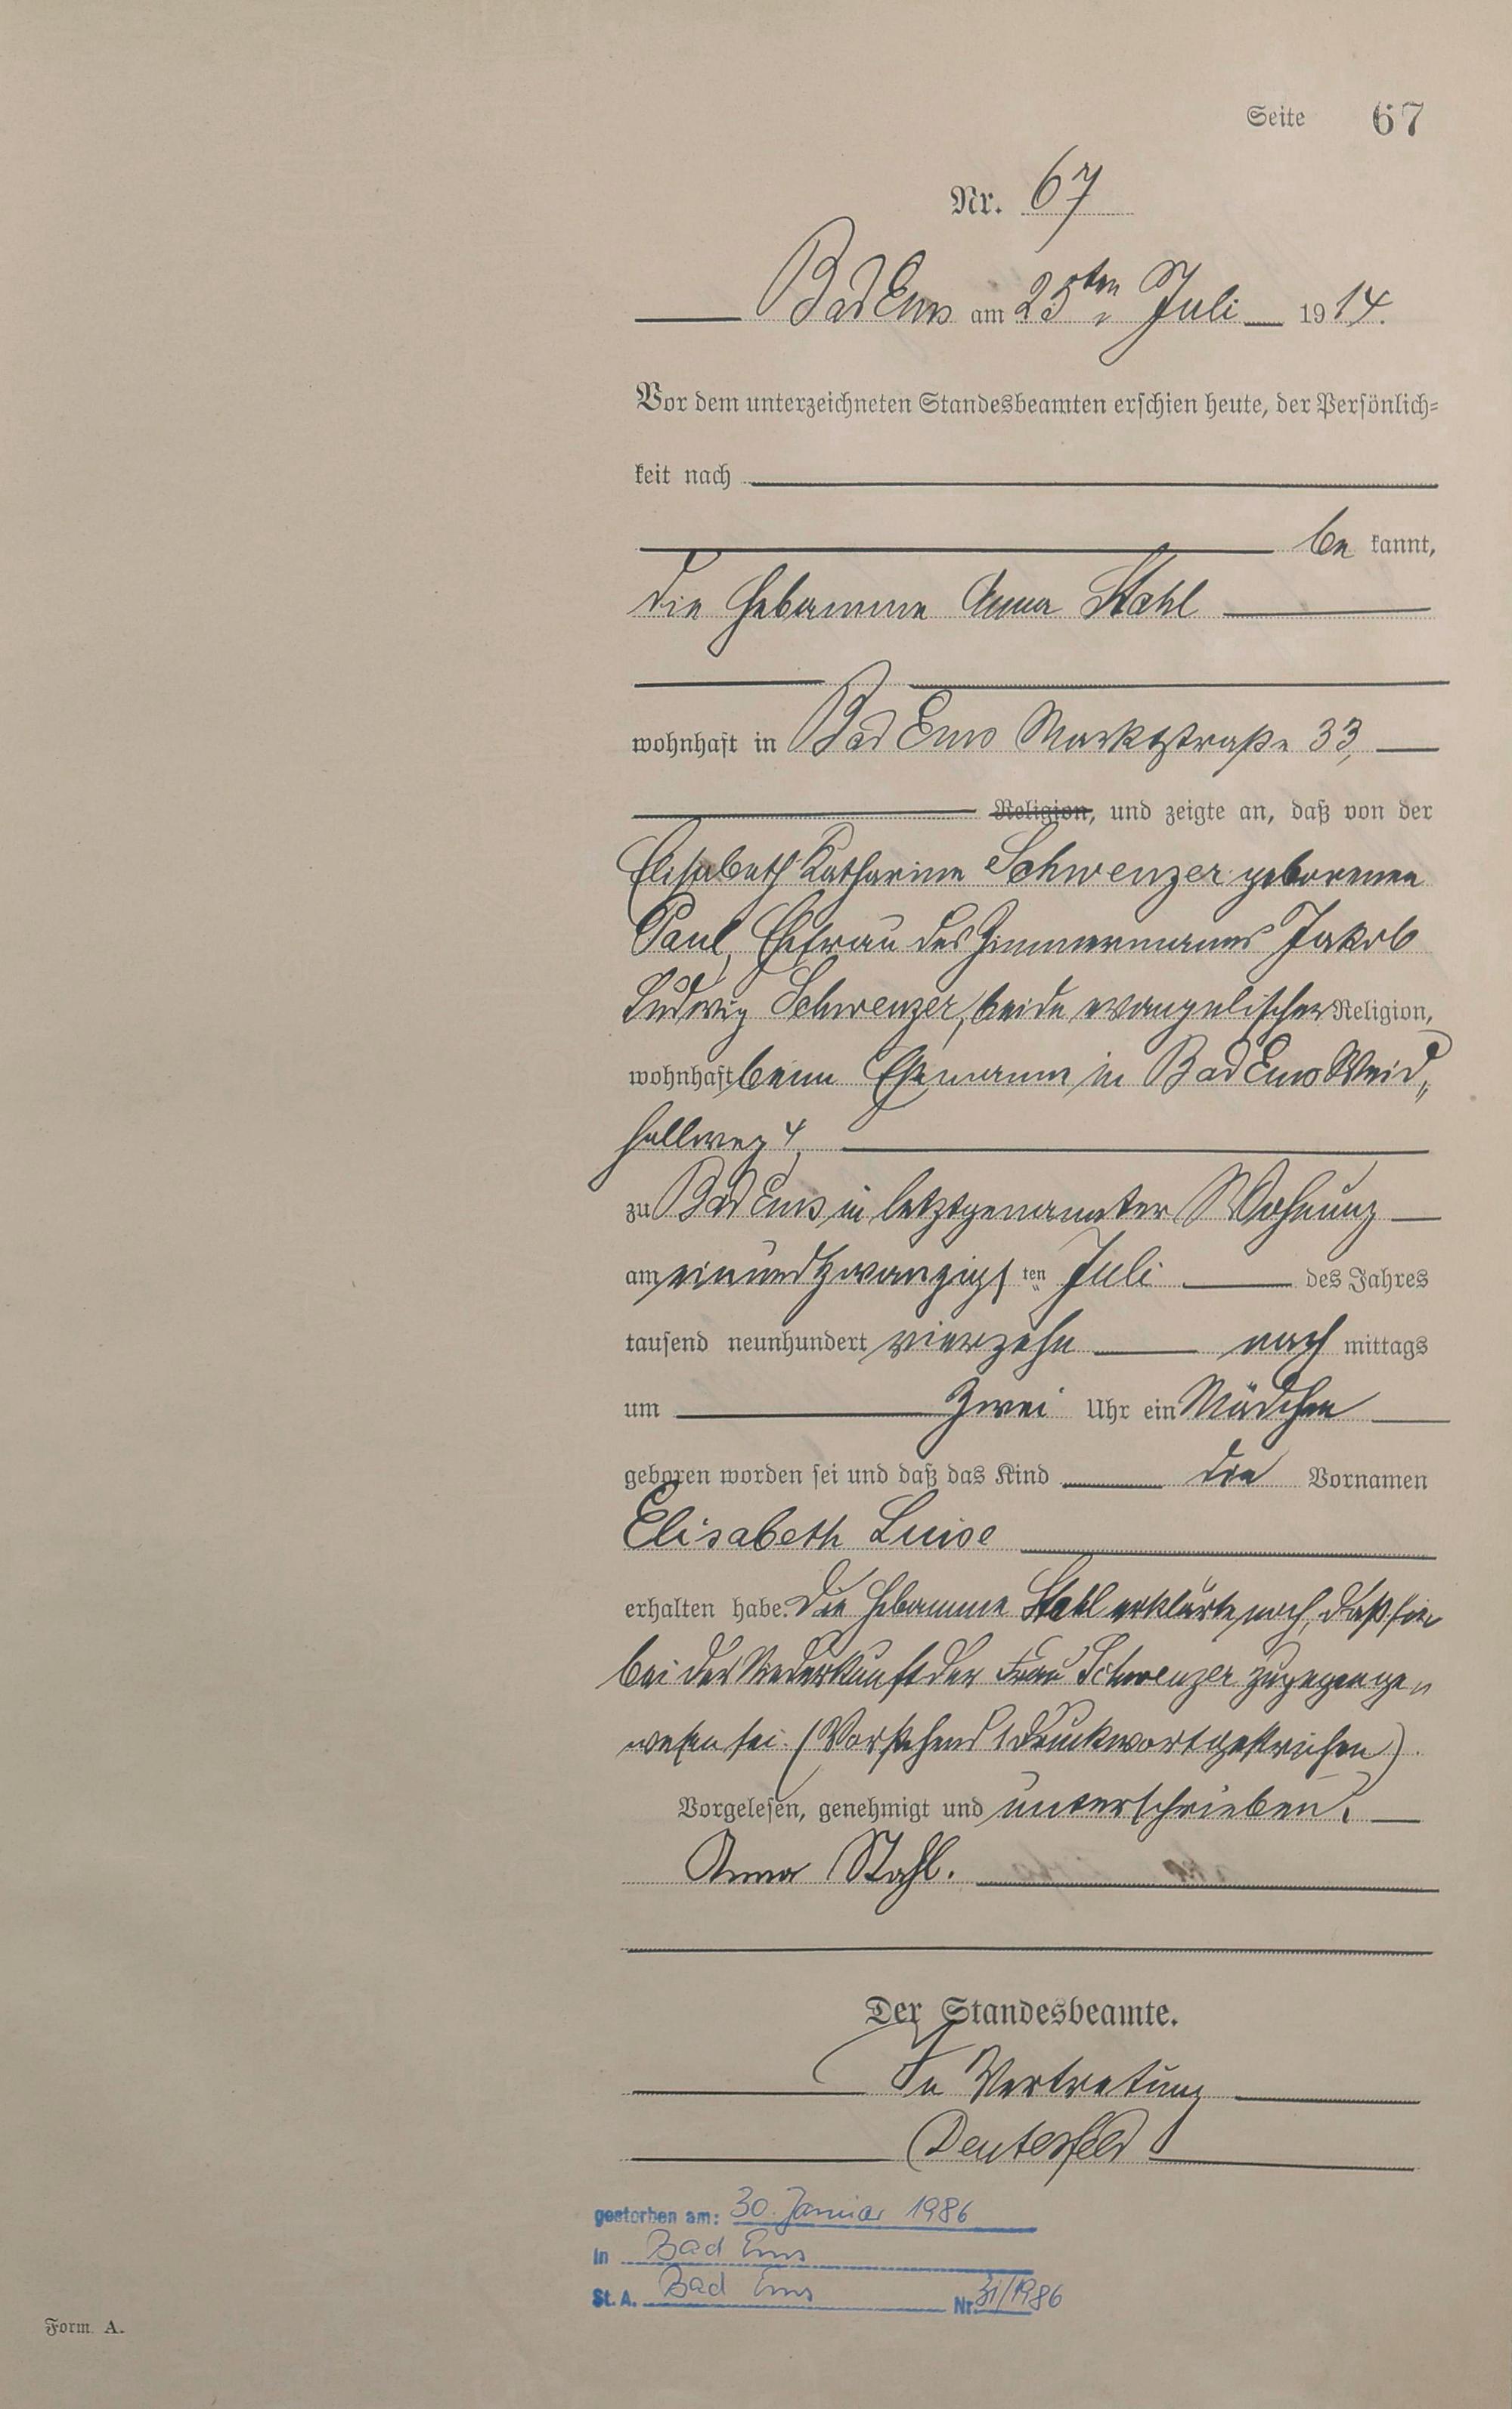 Seite 67
Nr. 67
Bad Ems am 25ten Juli 1914.
Vor dem unterzeichneten Standesbeamten erschien heute, der Persönlich-
keit nach
be kannt,
die Hebamme Anna Stahl
wohnhaft in Bad Ems Marktstraße 33,
Religion, und zeigte an, daß von der
Elisabeth Katharine Schwenzer geborenen
Paul, Ehefrau des Zimmermanns Jakob
Ludwig Schwenzer, beide evangelischer Religion,
wohnhaft beim Ehemann in Bad Ems Weid„
hellweg 4,
zu Bad Ems in letztgenannter Wohnung
am einundzwanzigs ten Juli des Jahres
tausend neunhundert vierzehn nach mittags
um zwei Uhr ein Mädchen
geboren worden sei und daß das Kind die Vornamen
Elisabeth Luise
erhalten habe. Die Hebamme Stahl erklärte noch, daß sie
bei der Niederkunft der Frau Schwenzer zugegen ge„
wesen sei. (Vorstehend 1 Druckwort gestrichen).
Vorgelesen, genehmigt und unterschrieben.
Anna Stahl.
Der Standesbeamte.
In Vertretung
gestorben am: 30. Januar 1986
in Bad Ems
St. A. Bad Ems Nr. 31/1986
Form. A.